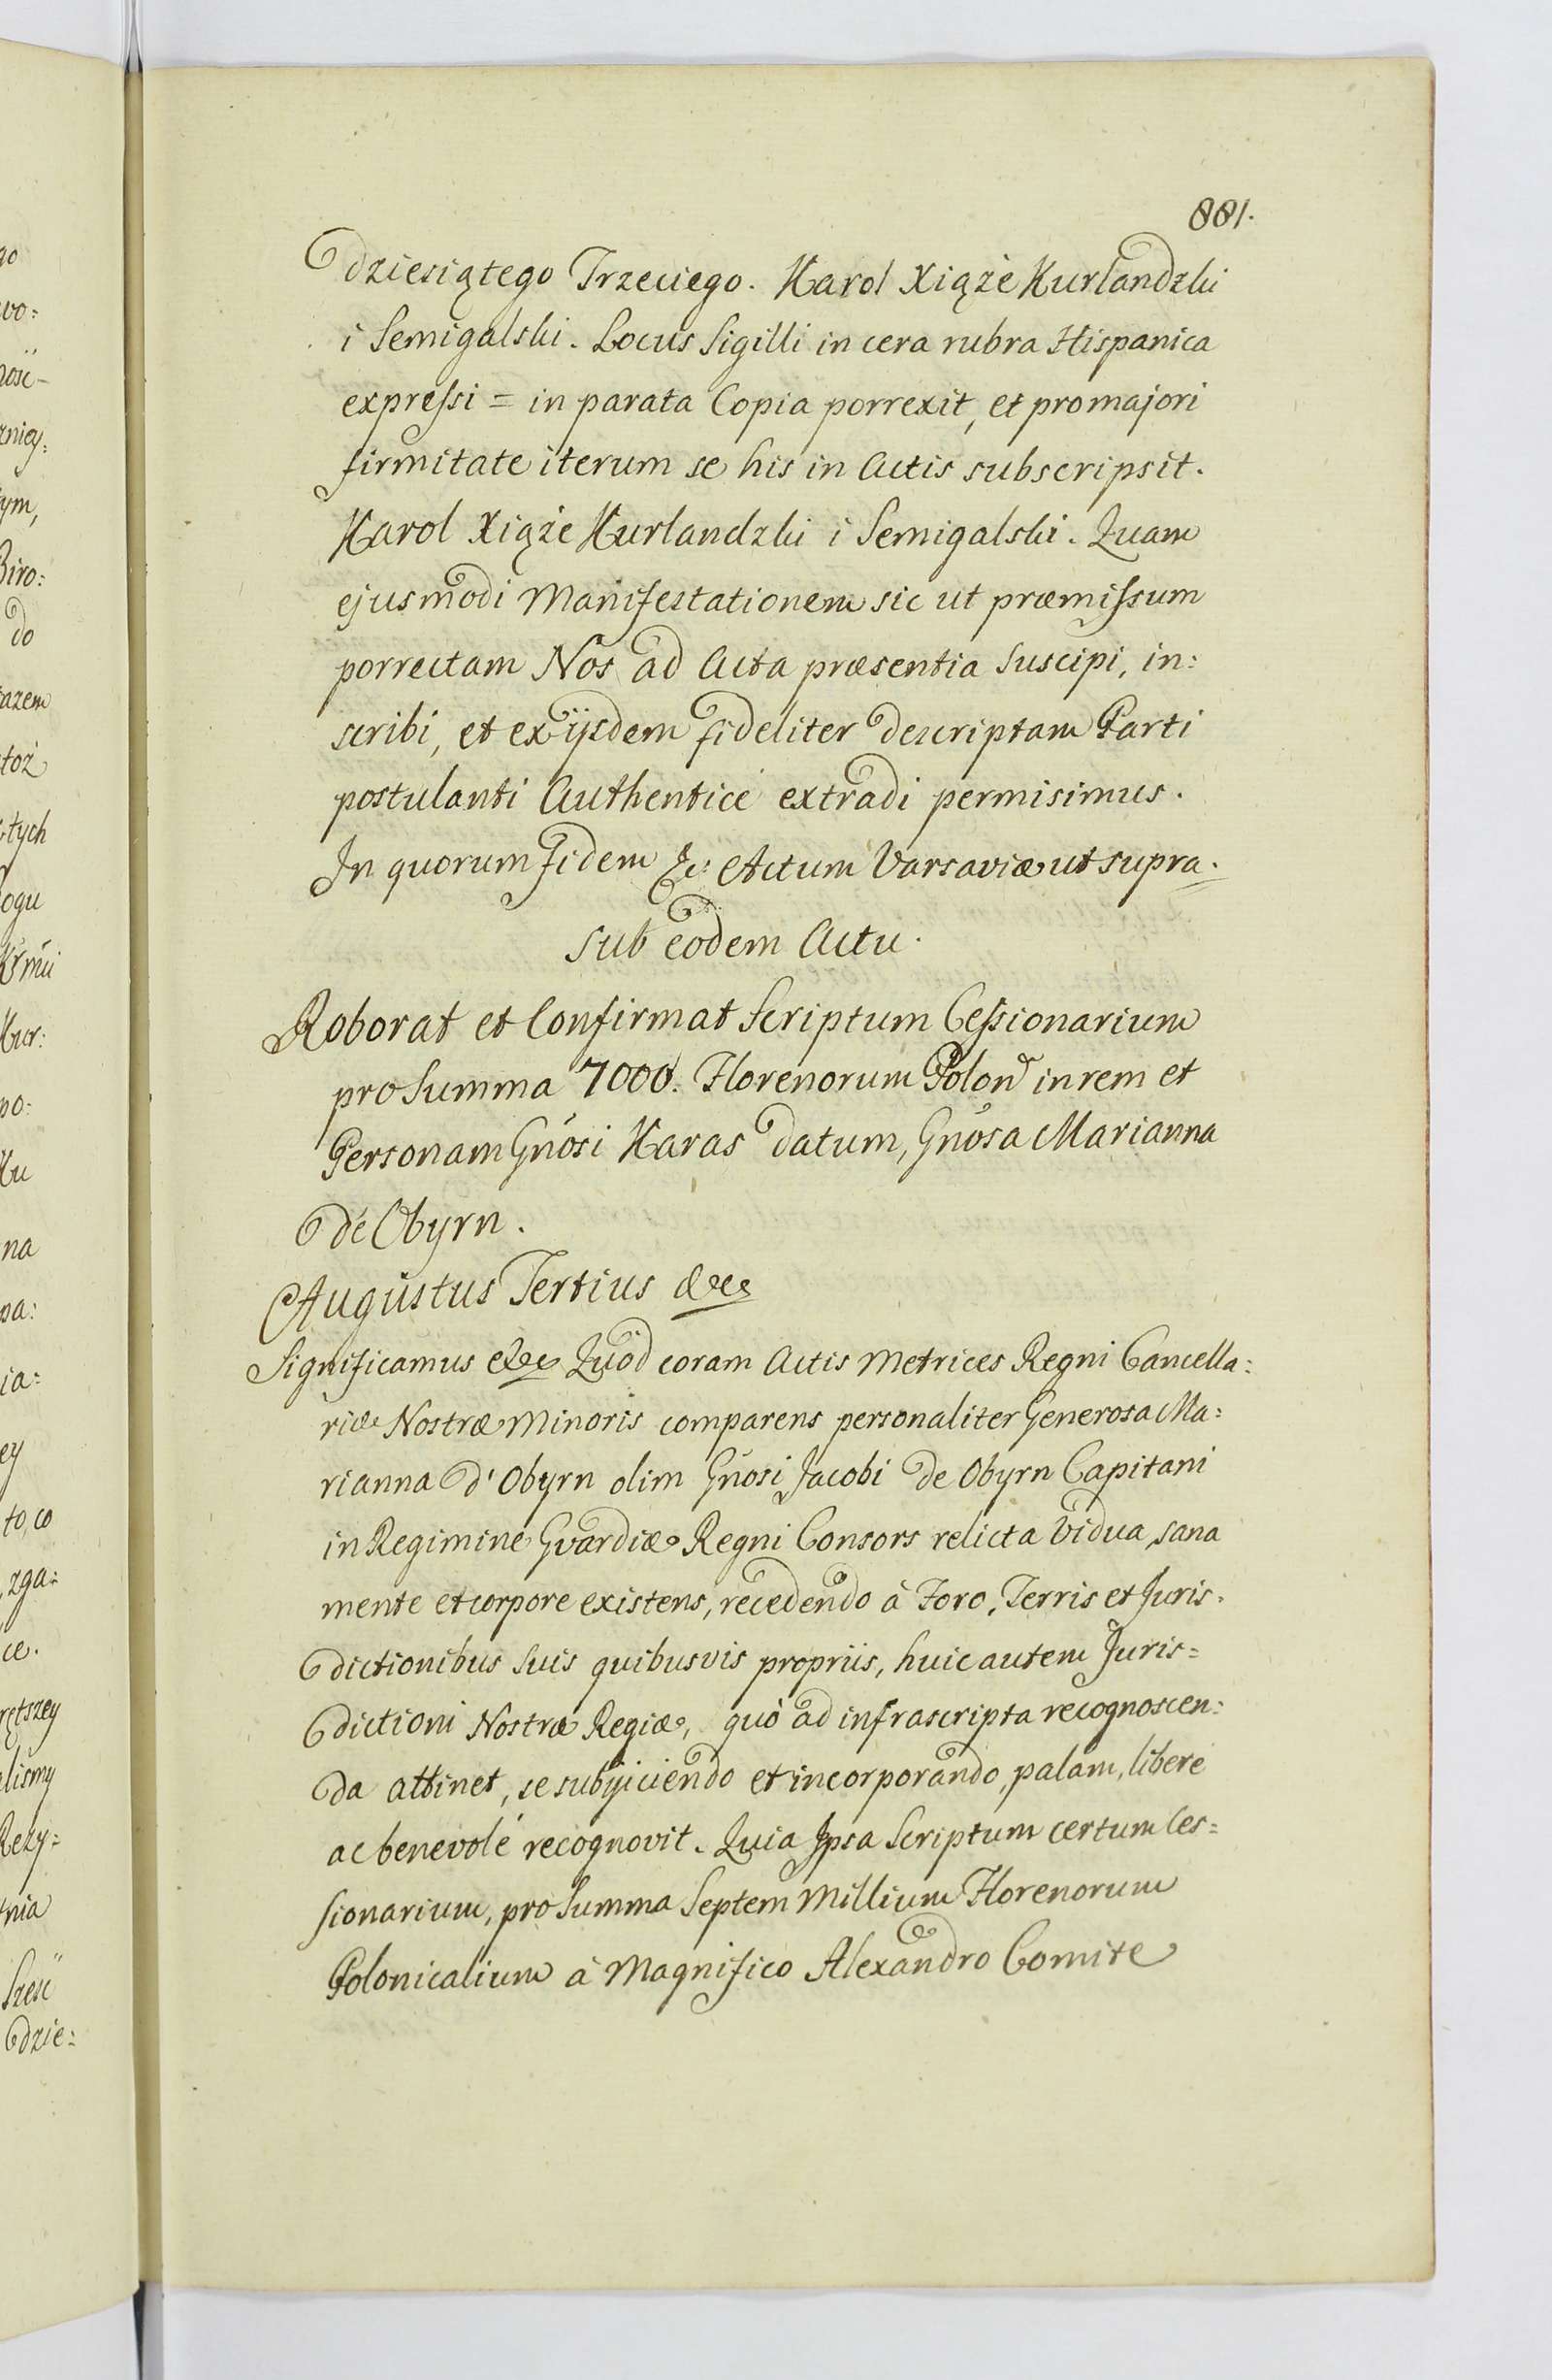 881.
dziesiątego Trzeciego. Karol Xiąże Kurlandzki
i Semigalski. Locus Sigilli in cera rubra Hispanica
expreſsi = in parata Copia porrexit, et pro majori
firmitate iterum se his in Actis subscripsit.
Karol Xiąże Kurlandzki i Semigalski. Quam
ejusmodi Manifestationem sic ut præmiſsum
porrectam Nos ad Acta præsentia suscipi, in:
scribi, et ex ijsdem fideliter descriptam Parti
postulanti Authenticè extradi permisimus.
In quorum fidem &c: Actum Varsaviæ ut supra.
Sub eodem Actu.
Roborat et Confirmat Scriptum Ceſsionarium
pro Summa 7000. Florenorum Polon in rem et
Personam Gnosi Karas datum, Gnosa Marianna
de Obyrn.
Augustus Tertius &c
Significamus &c Quod coram Actis Metrices Regni Cancella:
riæ Nostræ Minoris comparens personaliter Generosa Ma:
rianna d' Obyrn olim Gnosi Jacobi de Obyrn Capitani
in Regimine Gvardiæ Regni Consors relicta Vidua, sana
mente et corpore existens, recedendo à Foro, Terris et Juris.
dictionibus suis quibusvis propriis, huic autem Juris=
dictioni Nostræ Regiæ, quò ad infrascripta recognoscen:
da attinet, se subjiciendo et incorporando, palam, liberè
ac benevolè recognovit. Quia Ipsa Scriptum certum Ces=
sionarium, pro Summa Septem Millium Florenorum
Polonicalium à Magnifico Alexandro Comite
go
wo:
ym,
Biro:
do
tych
ogu
Kur:
po:
na
pa:
ia:
ey
to, co
zga:
ce.
elismy
nia
dzie: